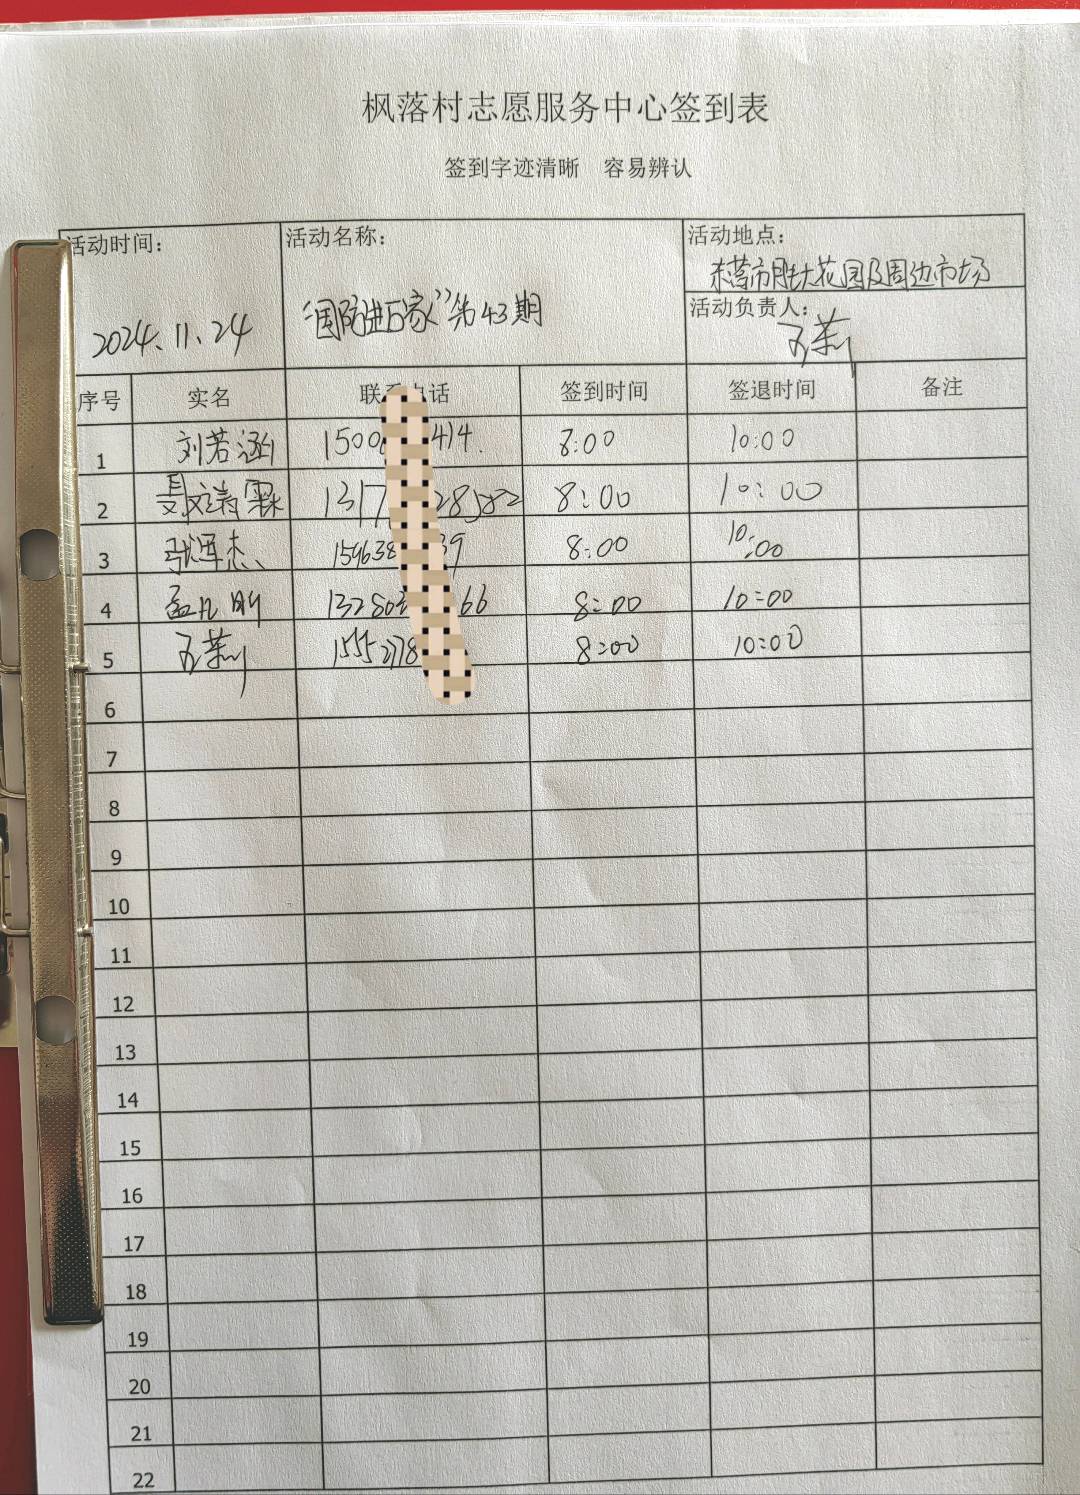 枫落村志愿服务中心签到表
签到字迹清晰 容易辨认
活动时间: 活动名称: 活动地点:
花园及周边市场
2024.11.24 “国防进万家”第43期 活动负责人:
序号 实名 联 话 签到时间 签退时间 备注
1 刘若涵 1500 414. 8:00 10:00
2 1317 28582 8:00 10:00
3 张浑杰 159638 39 8:00 10:00
4 孟凡明 132803 66 8:00 10:00
5 15552778 8:00 10:00
6
7
8
9
10
11
12
13
14
15
16
17
18
19
20
21
22